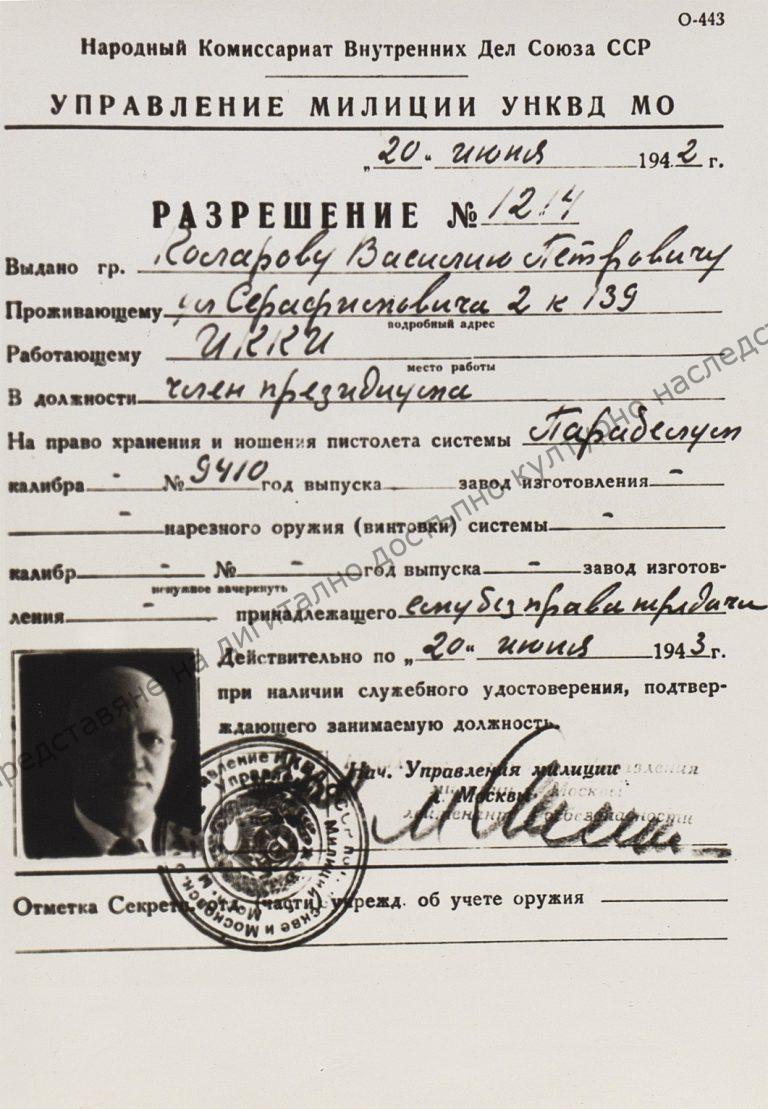 О-443
Народный Комиссариат Внутренних Дел Союза ССР
УПРАВЛЕНИЕ МИЛИЦИИ УНКВД МО
„20“ июня 1942 г.
РАЗРЕШЕНИЕ № 1214
Выдано гр. Коларову Василию Петровичу
Проживающему ул Серафимовича 2 к 139
подробный адрес
Работающему ИККИ
место работы
В должности член президиума
На право хранения и ношения пистолета системы Парабелум
калибра - № 9410 год выпуска завод изготовления -
- нарезного оружия (винтовки) системы -
калибр - № - год выпуска - завод изготов-
ненужное зачеркнуть
ления - принадлежащего ему без права передачи
Действительно по „20“ июня 1943 г.
при наличии служебного удостоверения, подтвер-
ждающего занимаемую должность.
Нач. Управления милиции
г. Москвы
Отметка Секретн. отд. (части) учрежд. об учете оружия
представяне на дигитално достъпно културно наследст